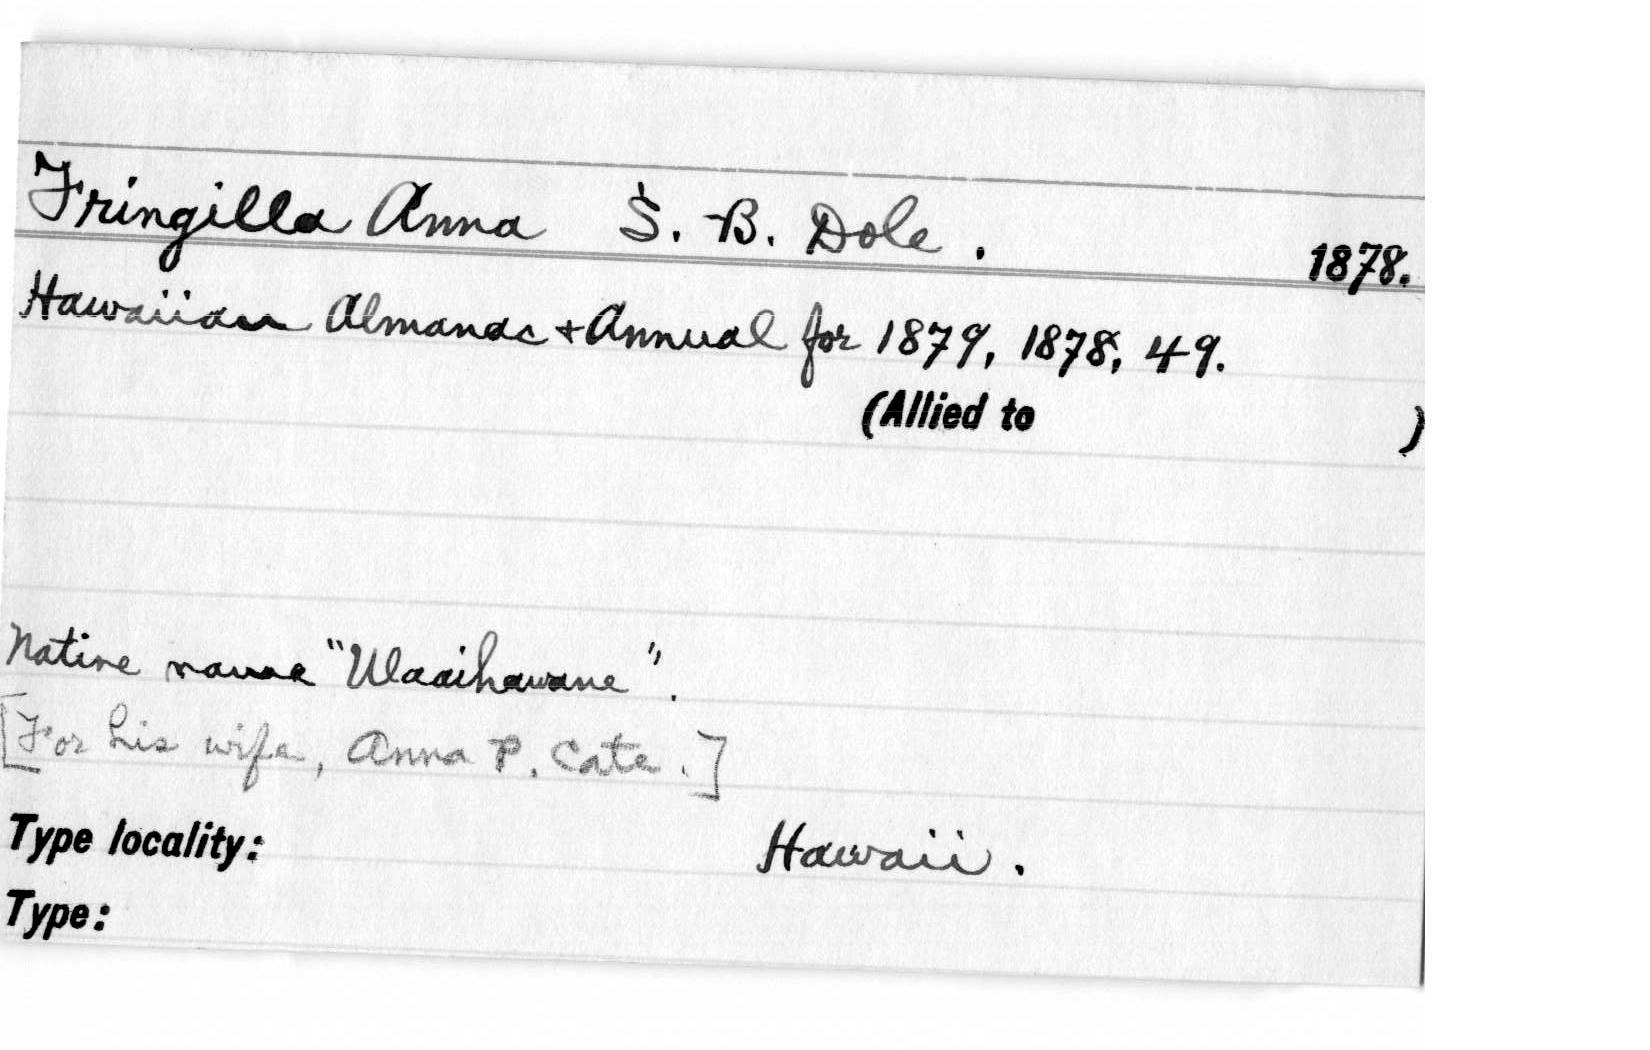 Fringilla Anna S. B. Dole. 1878.
Hawaiian Almanac + Annual for 1879, 1878, 49.
(Allied to )
Native name "Ulaaihawane".
[For his wife, Anna P. Cate.]
Type locality: Hawaii.
Type: